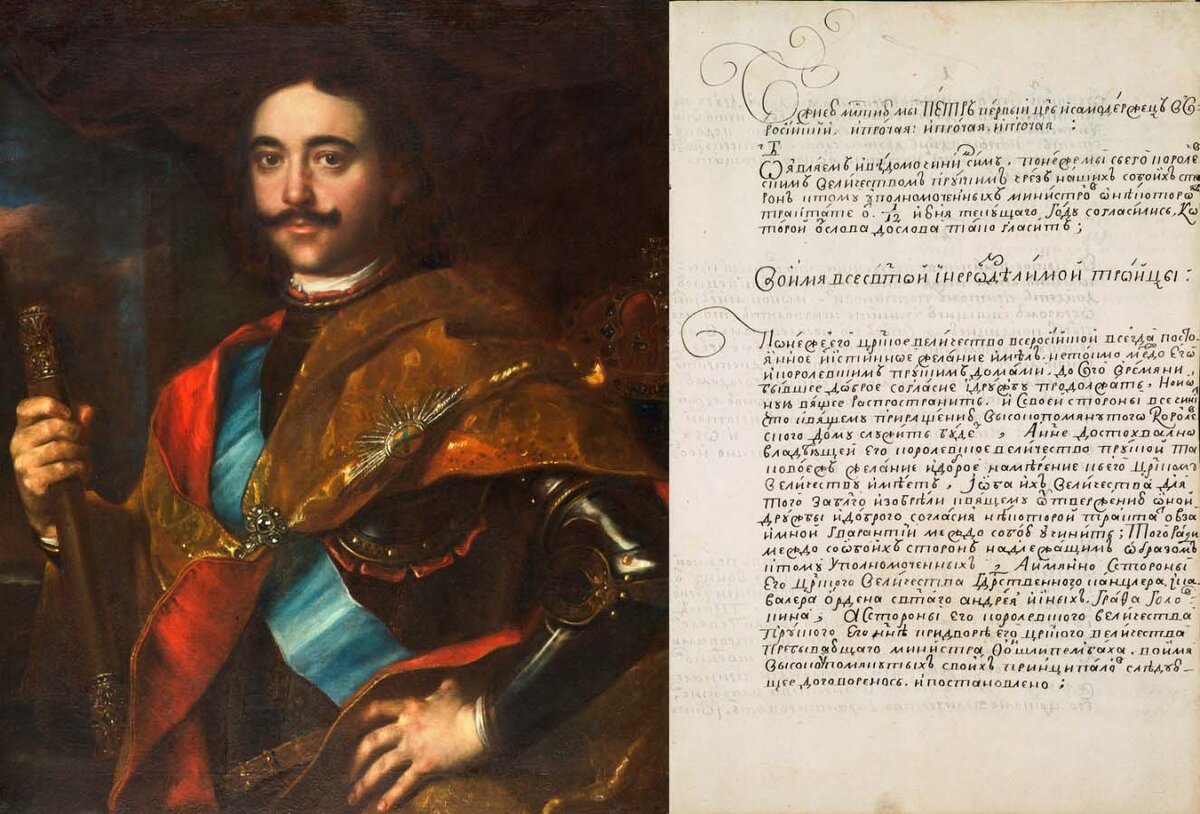 Божиею млтию мы ПЕТРЪ первый црь исамодержецъ все
росийский. ипрочая: ипрочая. ипрочая:
Объявляемъ ивѣдомо чинимъ симъ, понежемы съего короле
скимъ величествомъ прускимъ чрезъ нашихъ собоихъ сто
ронъ ктому уполномоченныхъ министровъ онѣкоторомъ
трактате о. 1/12 июня текущаго году согласились, ко
торой ѿслова дослова тако гласитъ;
Воимя всесвтой інераздѣлимой тройцы:
Понеже его црское величество всеросийской всегда посто
янное иистинное желание имѣлъ. нетокмо междо Его
икоролевскимъ прускимъ домами, до сего времяни
бывшее доброе согласие ідружбу продолжать. Но
вяще распространить. и своей стороны все
квящему приращению высокопомянутого Короле
ского дому служить буде, Аине достохвално
владѣющей Его королевское величество пруской та
ковоежъ желание идоброе намѣрение къего црскому
величеству имѣетъ, Іоба ихъ величества для
того заблго изобрѣли квящему ѿтверженію оной
дружбы идоброго согласия нѣкоторой трактатъ овза
имной гварантиі междо собою учинить; Того ради
междо собоихъ сторонъ надлежащимъ образомъ
ктому Уполномоченныхъ, Аимянно Сстороны
Его црского величества Гдрственного канцлера, іка
валера ордена святаго андрея ииныхъ. Графа Голо
кина, Асстороны его королевского величества
пруского его ннѣ придворѣ его црского величества
пребывающаго министра Фошлипембаха. воимя
высокопомянутыхъ своихъ принципаловъ слѣдую-
щее договоренось. ипостановлено;